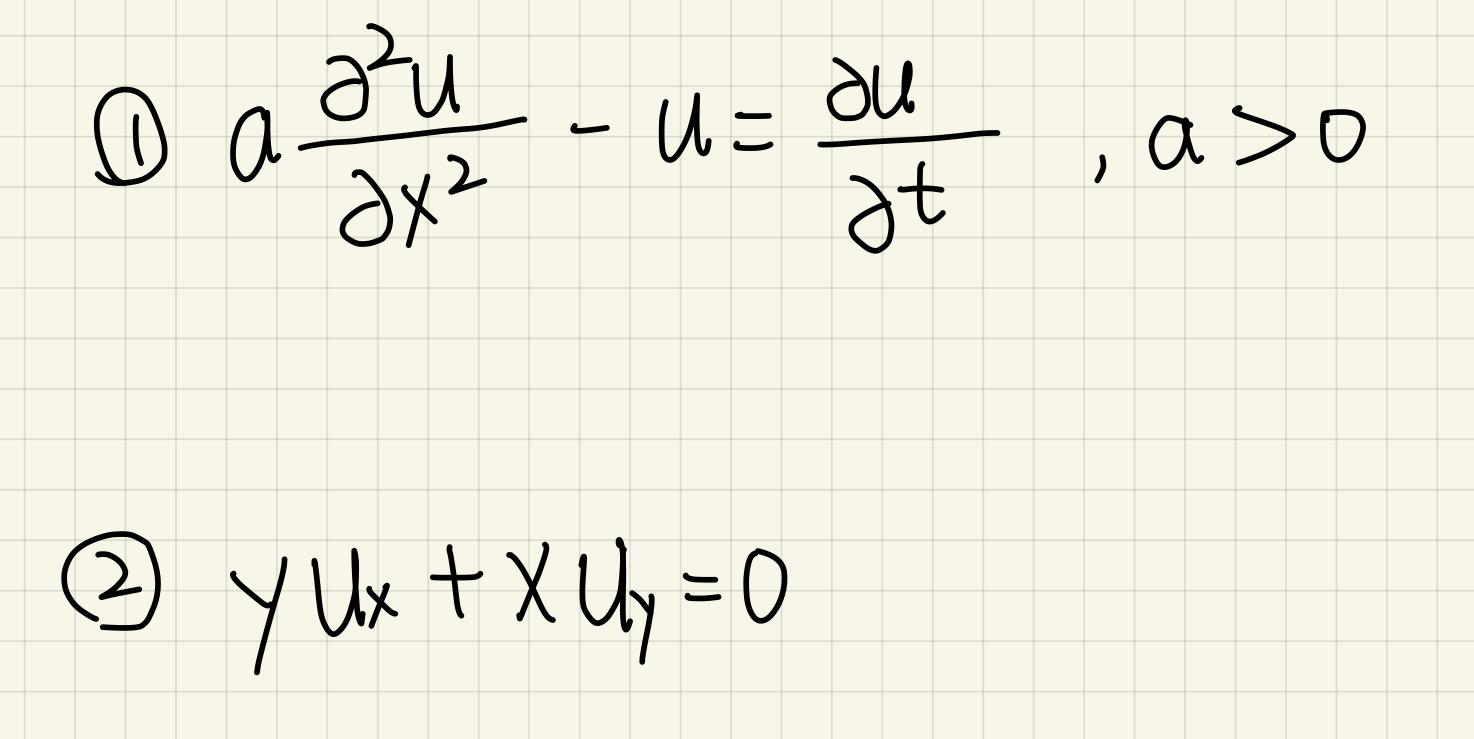 ① a ∂²u/∂x² - u = ∂u/∂t , a > 0
② yu_x + xu_y = 0